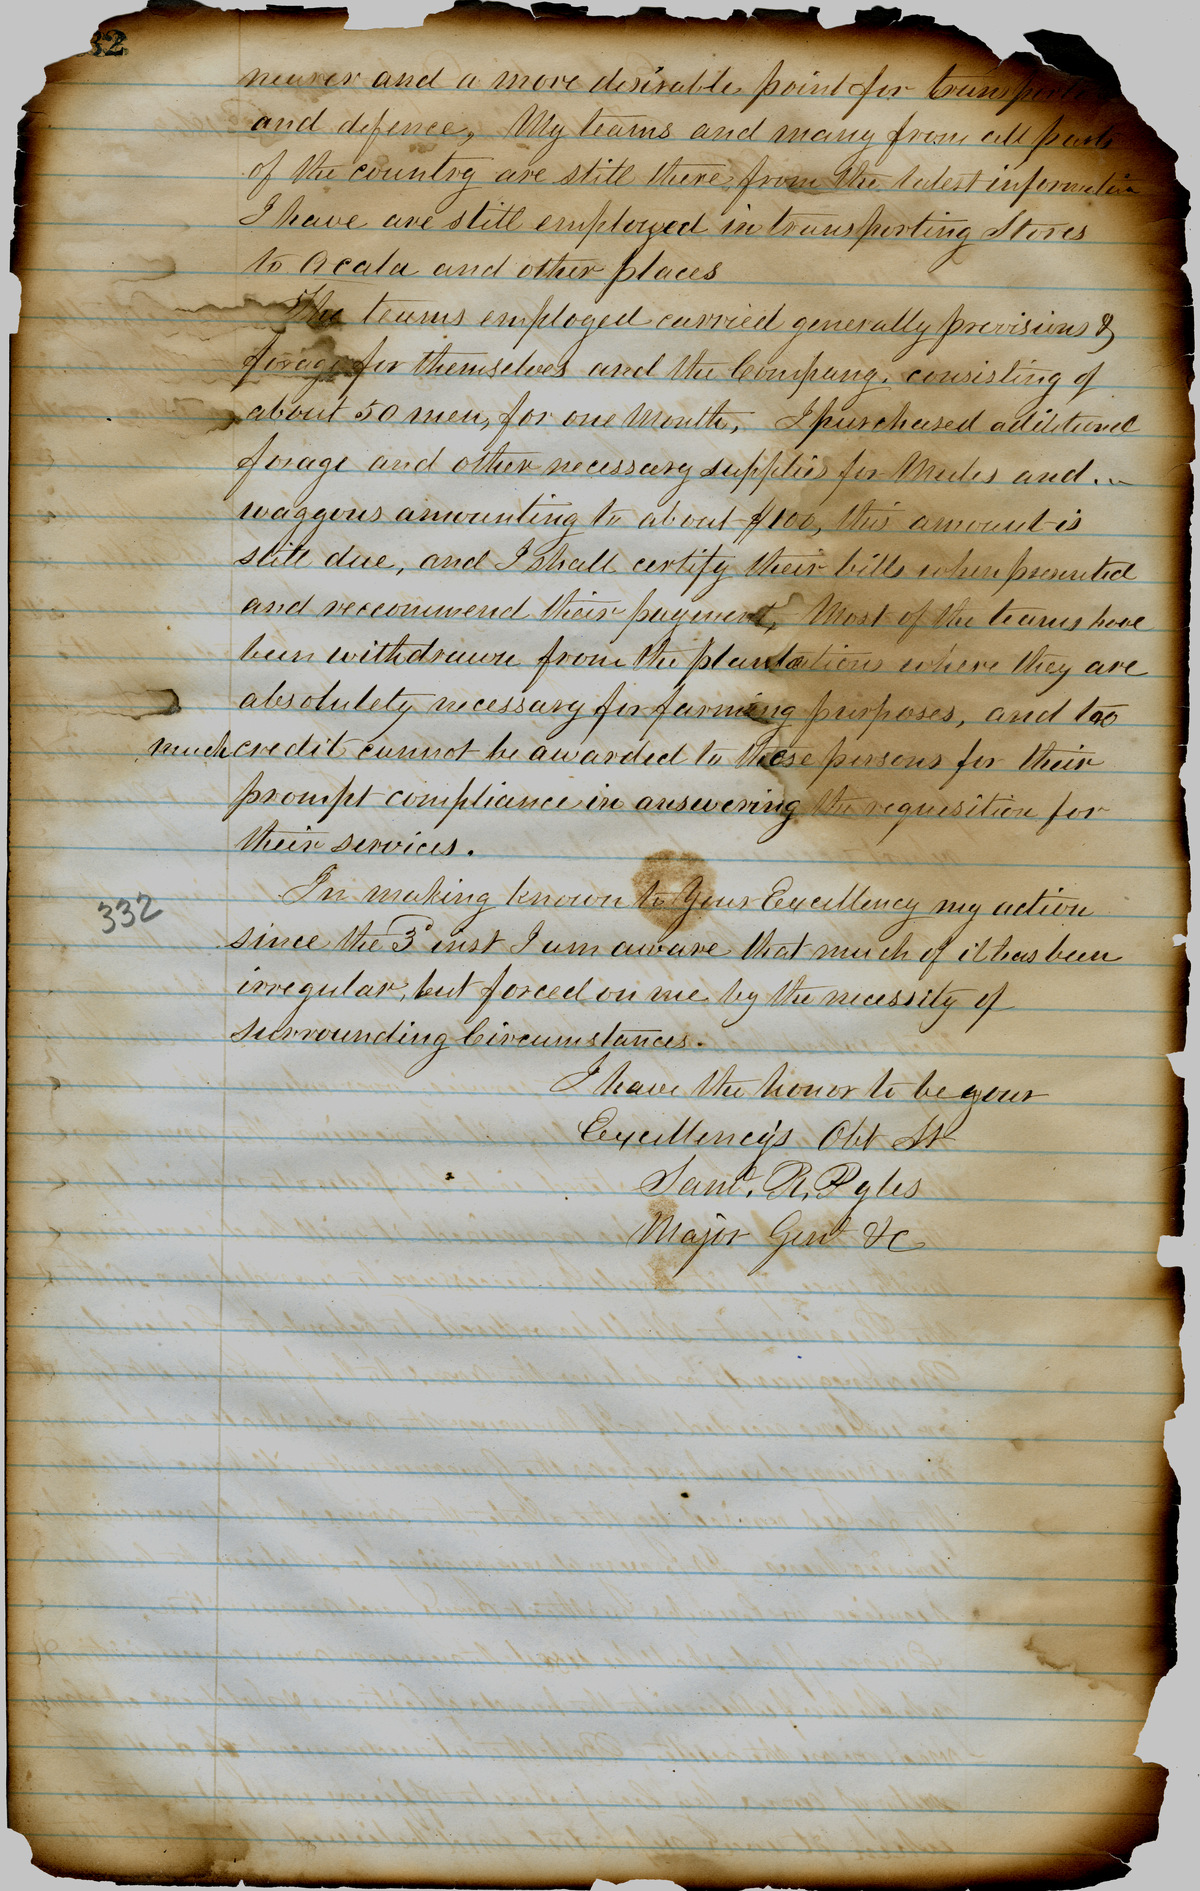 32
nearer and a more desirable point for
and defence, My teams and many from all parts
of the country are still there, from the latest information
I have are still employed in transporting Stores
to Ocala and other places
The teams employed carried generally provisions &
forage for themselves and the Company, consisting of
about 50 men, for one Month, I purchased additional
forage and other necessary supplies for Mules and
waggons amounting to about $100, this amount is
still due, and I shall certify their bills when presented
and reccommend their payment, Most of the teams have
been withdrawn from the plantations where they are
absolutely necessary for farming purposes, and too
much credit cannot be awarded to these persons for their
prompt compliance in answering the requesition for
their services.
In making known to Your Excellency my action
332
since the 3d inst I am aware that much of it has been
irregular, but forced on me by the necessity of
surrounding Circumstances.
I have the honor to be your
Excellency's Obt St
Saml. R. Pyles
Major Genl &C